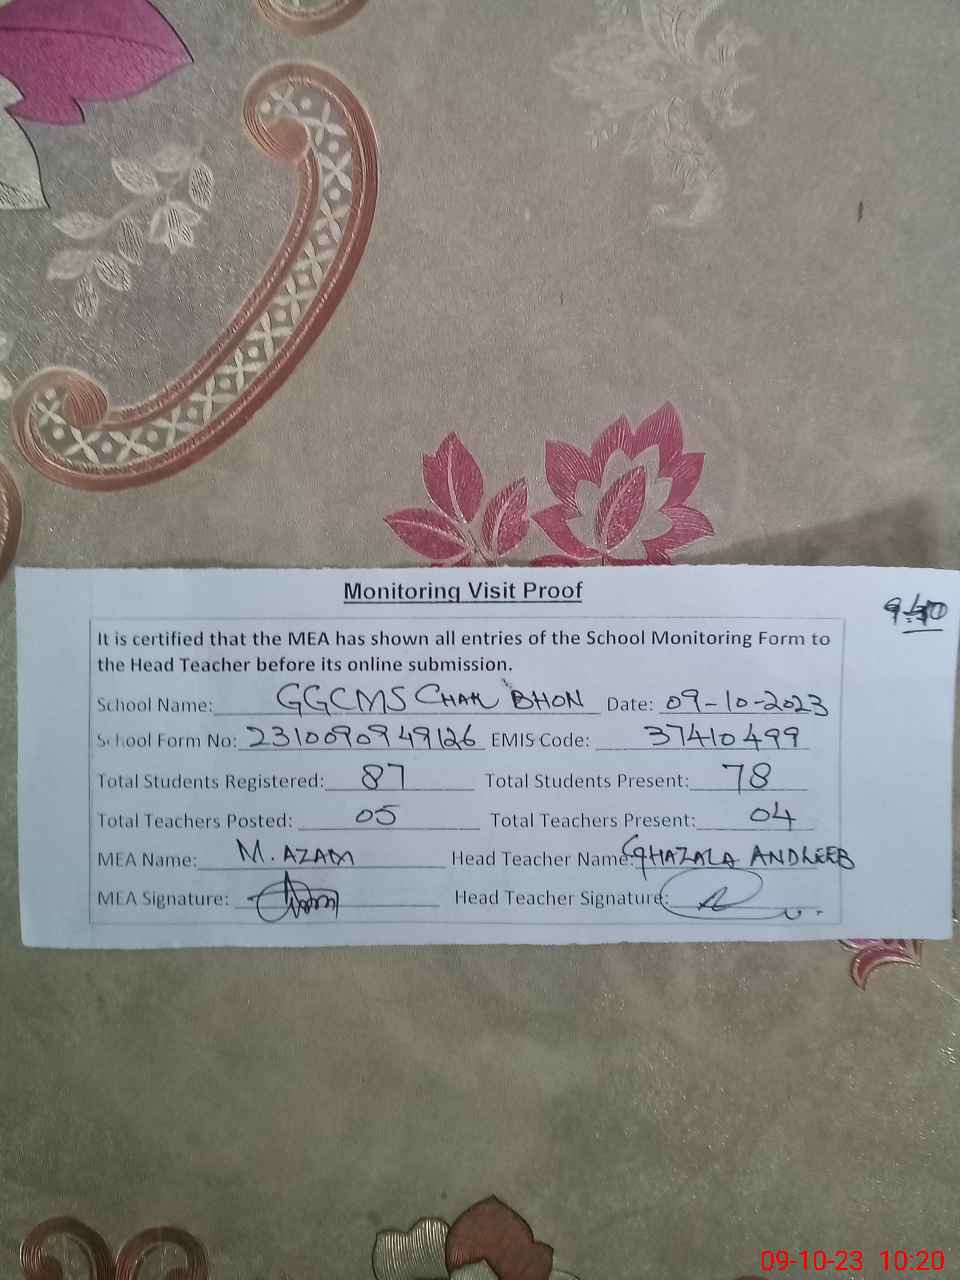 Monitoring Visit Proof
It is certified that the MEA has shown all entries of the School Monitoring Form to
the Head Teacher before its online submission.
School Name: GGCMS CHAK BHON Date: 09-10-2023
School Form No: 2310090949126 EMIS Code: 37410499
Total Students Registered: 87 Total Students Present: 78
Total Teachers Posted: 05 Total Teachers Present: 04
MEA Name: M. AZAM Head Teacher Name: GHAZALA ANDLEEB
MEA Signature: Head Teacher Signature:
09-10-23 10:20